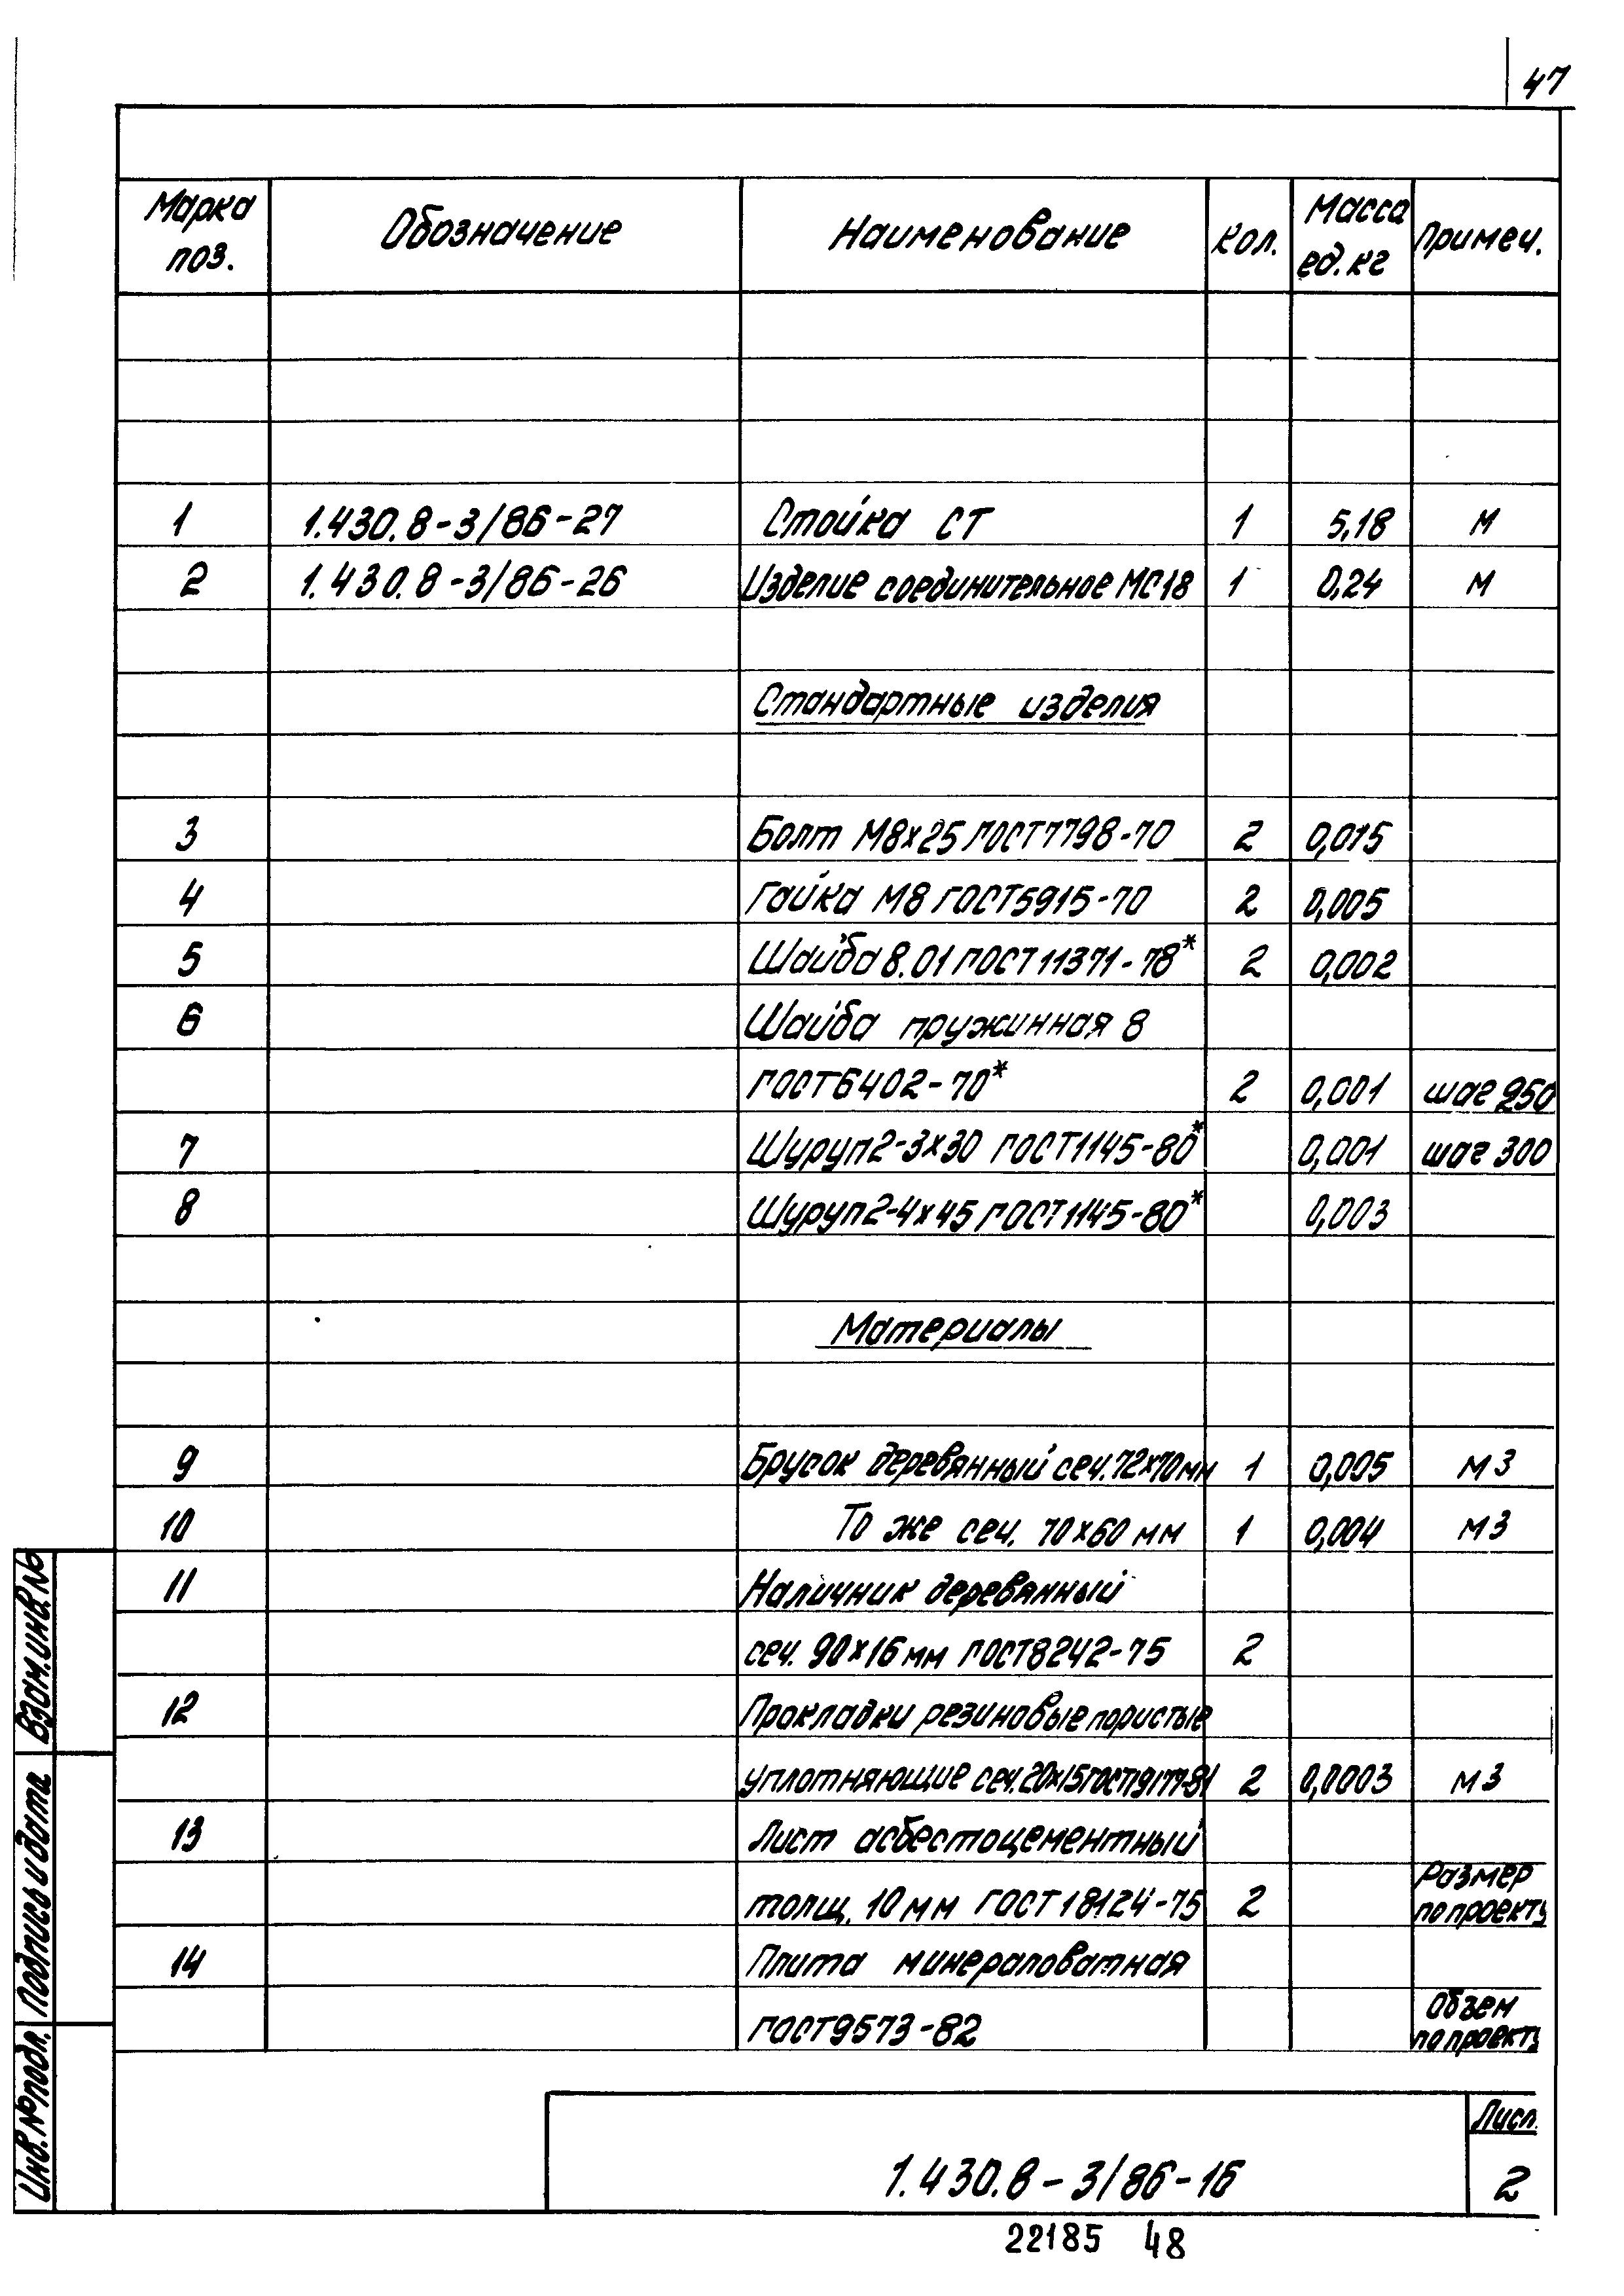 47
Марка поз. Обозначение Наименование Кол. Масса ед. кг Примеч.
1 1.430.8-3/86-27 Стойка СТ 1 5,18 М
2 1.430.8-3/86-26 Изделие соединительное МС18 1 0,24 М
Стандартные изделия
3 Болт М8х25 ГОСТ7798-70 2 0,015
4 Гайка М8 ГОСТ5915-70 2 0,005
5 Шайба 8.01 ГОСТ11371-78* 2 0,002
6 Шайба пружинная 8
ГОСТ6402-70* 2 0,001 шаг 250
7 Шуруп 2-3х30 ГОСТ1145-80* 0,001 шаг 300
8 Шуруп 2-4х45 ГОСТ1145-80* 0,003
Материалы
9 Брусок деревянный сеч.72х70мм 1 0,005 м3
10 То же сеч. 70х60 мм 1 0,004 м3
11 Наличник деревянный
сеч. 90х16 мм ГОСТ8242-75 2
12 Прокладки резиновые пористые
уплотняющие сеч.20х15ГОСТ19177-81 2 0,0003 м3
13 Лист асбестоцементный
толщ. 10 мм ГОСТ 18124-75 2 Размер по проекту
14 Плита минераловатная
ГОСТ9573-82 Объем по проекту
Взам.инв.№
Подпись и дата
Инв.№подл.
1.430.8-3/86-16
Лист
2
22185 48